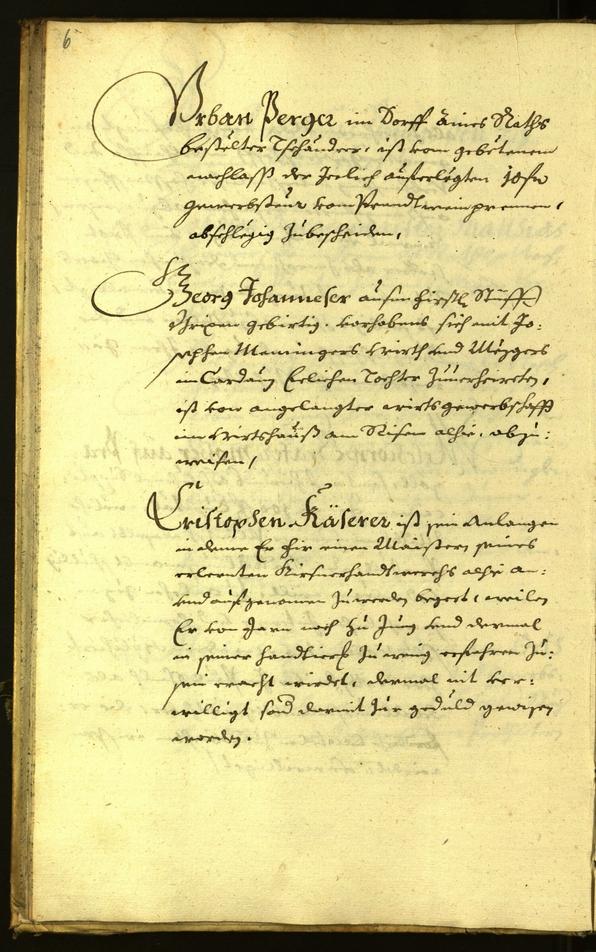 6
Urban Perger im Dorff aines Raths
bestelter Tschänder, ist vom gebetenem
nachlaß der Jerlich auferlegten 10 fl
gewerbsteur vom Prandtweinprennen,
abschlegig zubescheiden,
Georg Johanneser aus
gebirtig, vorhabens sich mit Jo:
sephen Meningers wirth vnd Mezgers
im Cardaun Eelichen Tochter zuuerheireten,
ist von angelangter wirtsgewerbschafft
im wirtshauß am Risen alhie, abzu:
weisen,
Cristophen Käserer ist sein Anlangen
in deme Er fir einen Maistern seines
erlernten Kirsnerhandtwerchs alhie an:
vnd aufgenomen zuwerden begert, weilen
Er von Jarn noch zu Jung vnd dermal
in seiner handtierung zu wenig erfahren zu:
sein eracht wirdet, dermal nit ver:
willigt sond damit zur geduld gewisen
worden.